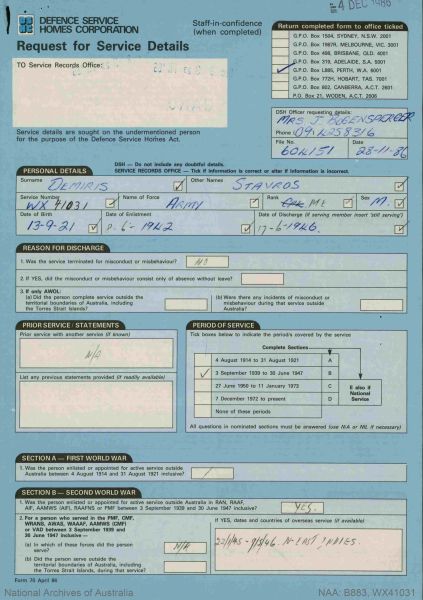 4 DEC 1986
DEFENCE SERVICE
HOMES CORPORATION
Staff-in-confidence
(when completed)
Request for Service Details
Return completed form to office ticked
G.P.O. Box 1504, SYDNEY, N.S.W. 2001
G.P.O. Box 1987R, MELBOURNE, VIC. 3001
G.P.O. Box 488, BRISBANE, QLD. 4001
G.P.O. Box 319, ADELAIDE, S.A. 5001
G.P.O. Box L885, PERTH, W.A. 6001
G.P.O. Box 772H, HOBART, TAS. 7001
G.P.O. Box 802, CANBERRA, A.C.T. 2601
P.O. Box 21, WODEN, A.C.T. 2606
TO Service Records Office:
DSH Officer requesting details:
MRS J.
Phone
File No. Date
60K151 28-11-86
Service details are sought on the undermentioned person
for the purpose of the Defence Service Homes Act.
DSH — Do not include any doubtful details.
SERVICE RECORDS OFFICE — Tick if information is correct or alter if information is incorrect.
PERSONAL DETAILS
Surname DEMIRIS Other Names STAVROS
Service Number WX 41031 Name of Force ARMY Rank Sex M.
Date of Birth Date of Enlistment Date of Discharge (if serving member insert 'still serving')
13-9-21 6-1942 17-6-1946.
REASON FOR DISCHARGE
1. Was the service terminated for misconduct or misbehaviour? NO
2. If YES, did the misconduct or misbehaviour consist only of absence without leave?
3. If only AWOL:
(a) Did the person complete service outside the
territorial boundaries of Australia, including
the Torres Strait Islands?
(b) Were there any incidents of misconduct or
misbehaviour during that service outside
Australia?
PRIOR SERVICE / STATEMENTS
Prior service with another service (if known)
N/A
List any previous statements provided (if readily available)
PERIOD OF SERVICE
Tick boxes below to indicate the period/s covered by the service
Complete Sections
4 August 1914 to 31 August 1921 A
3 September 1939 to 30 June 1947 B
27 June 1950 to 11 January 1973 C
7 December 1972 to present D
None of these periods
E also if
National
Service
All questions in nominated sections must be answered (use N/A or NIL if necessary)
SECTION A — FIRST WORLD WAR
1. Was the person enlisted or appointed for active service outside
Australia between 4 August 1914 and 31 August 1921 inclusive?
SECTION B — SECOND WORLD WAR
1. Was the person enlisted or appointed for active service outside Australia in RAN, RAAF,
AIF, AAMWS (AIF), RAAFNS or PMF between 3 September 1939 and 30 June 1947 inclusive? YES.
2. For a person who served in the PMF, CMF,
WRANS, AWAS, WAAAF, AAMWS (CMF)
or VAD between 3 September 1939 and
30 June 1947 inclusive —
(a) In which of these forces did the person
serve? N/A
(b) Did the person serve outside the
territorial boundaries of Australia, including
the Torres Strait Islands, during that service?
If YES, dates and countries of overseas service (if available)
Form 76 April 86
National Archives of Australia
NAA: B883, WX41031